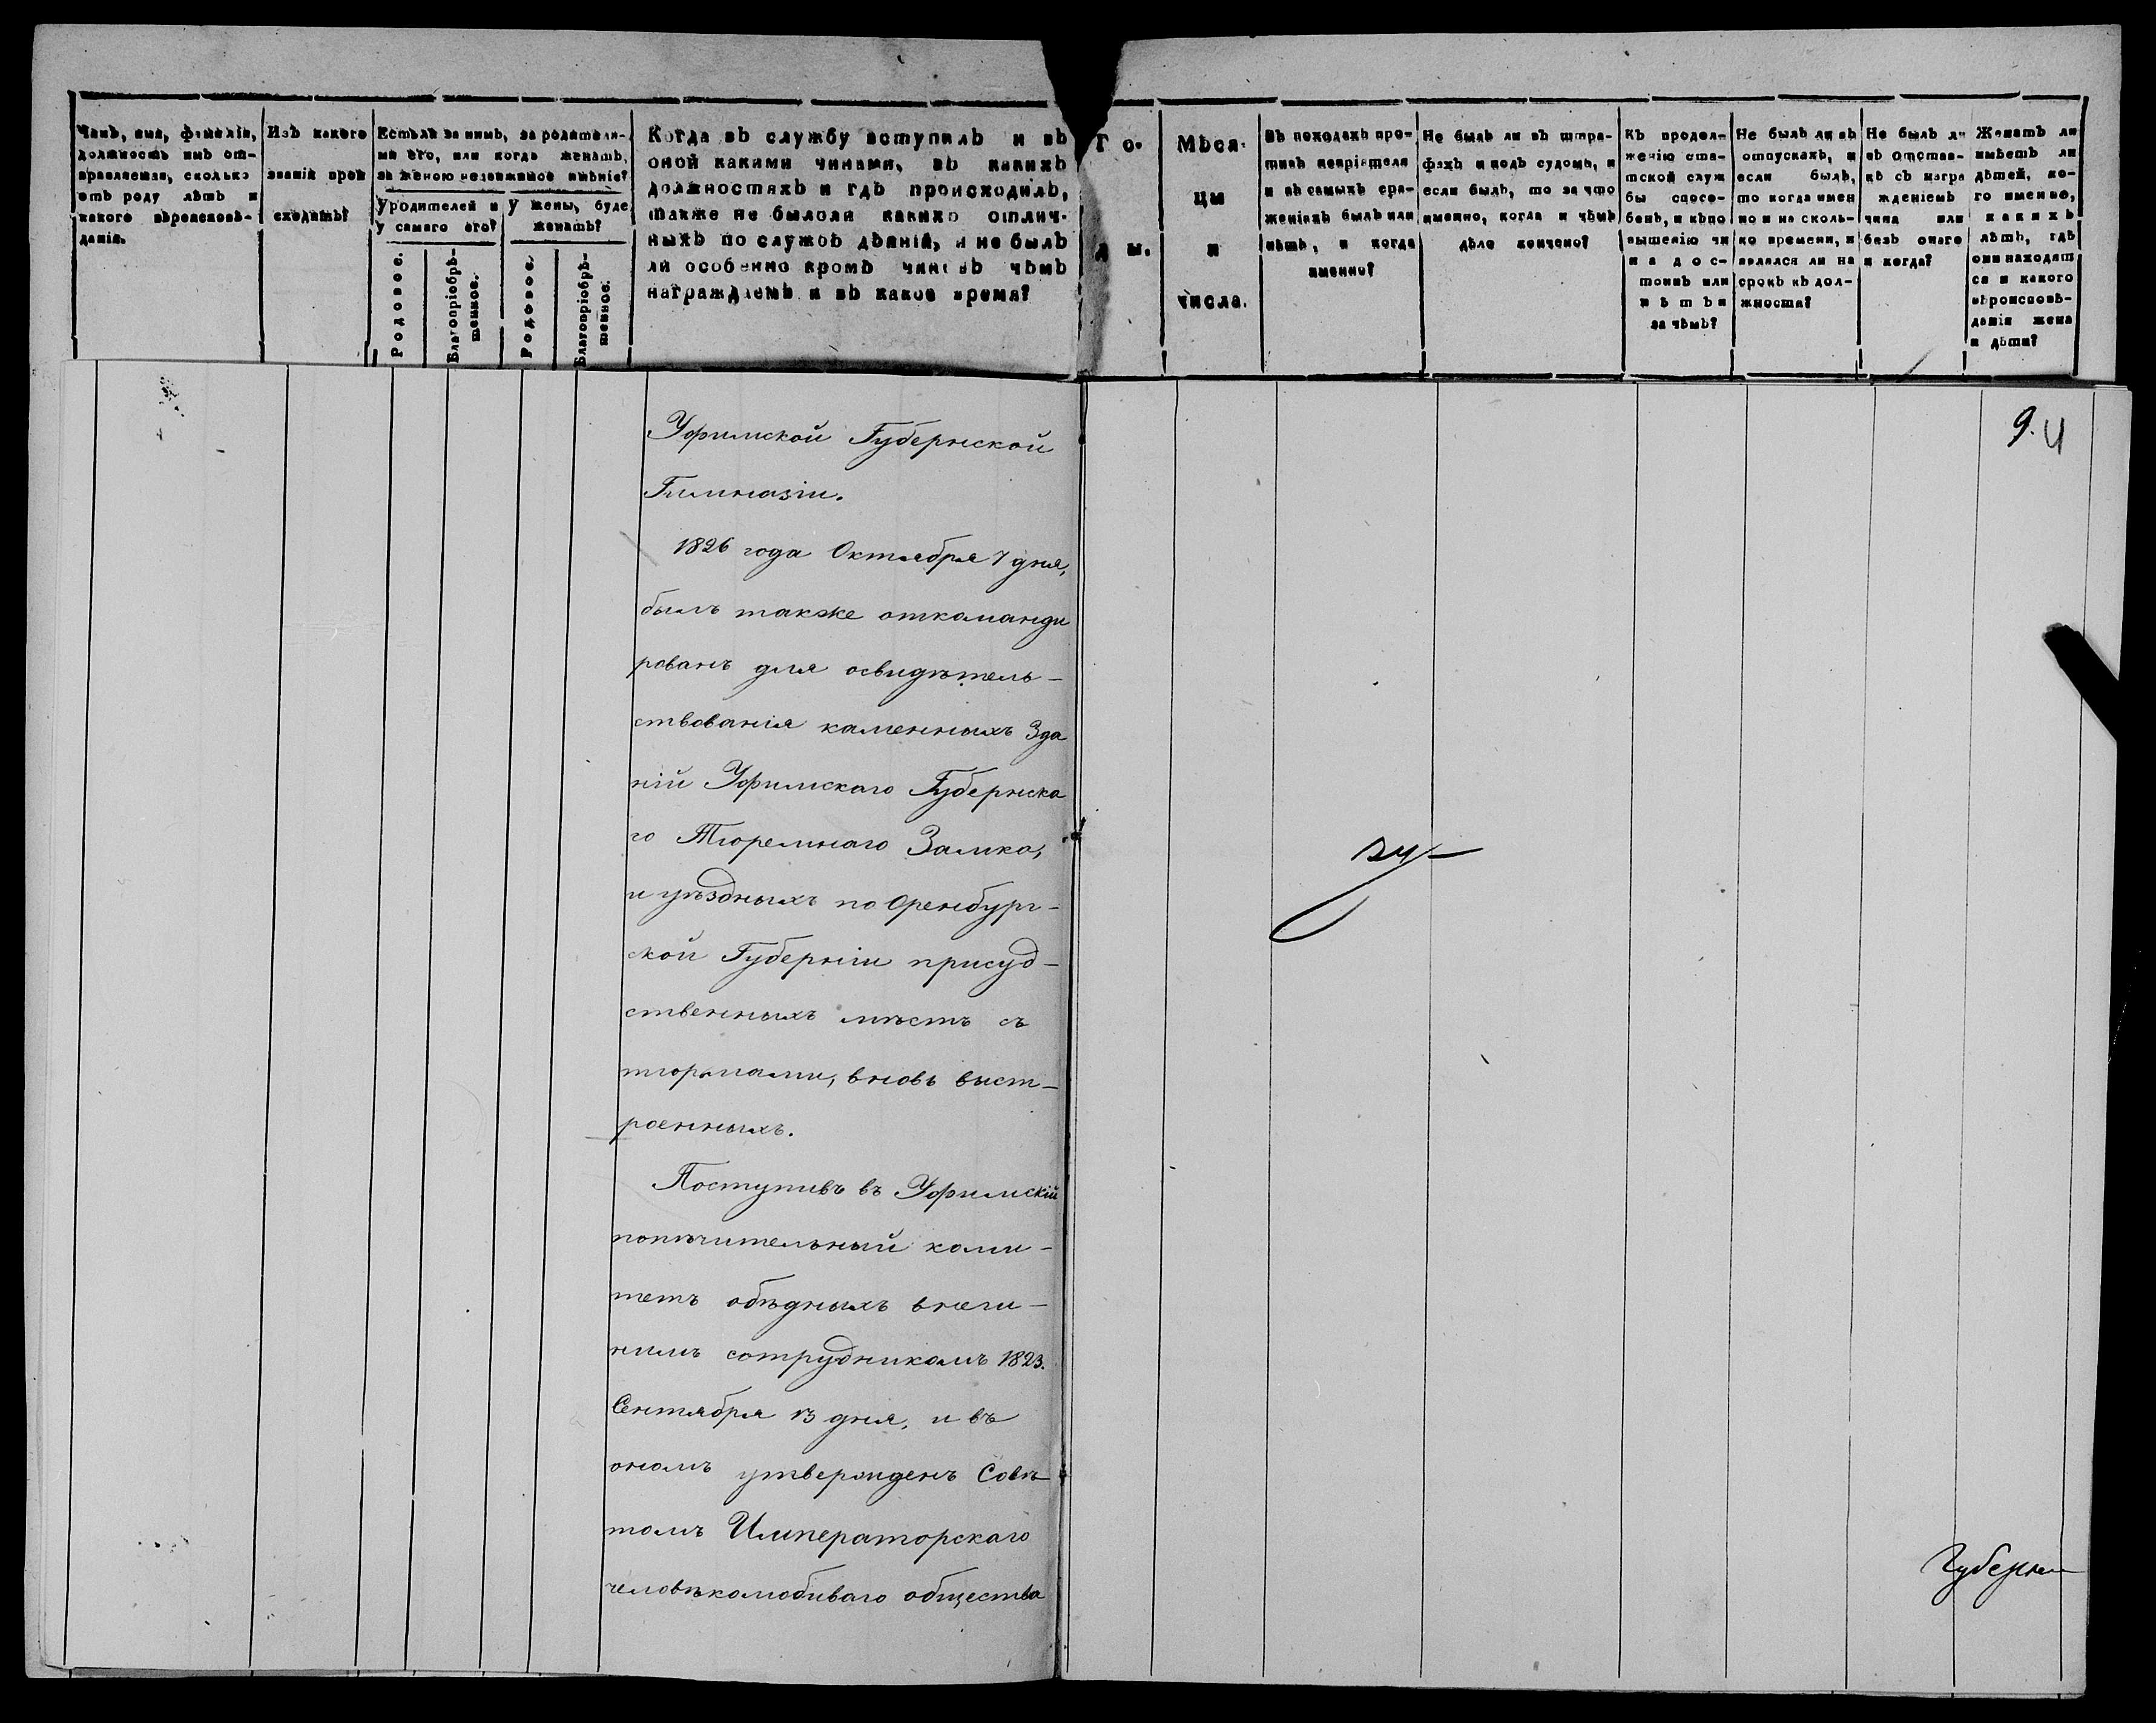 Чинъ, имя, фамилія,
должность имъ от-
правляемая, сколько
отъ роду лѣтъ и
какого вѣроисповѣ-
данія.
Изъ какого
званія прои
сходитъ?
Есть ли за нимъ, за родителя-
ми его, или когда женатъ,
за женою недвижимое имѣніе?
У родителей и
у самаго его?
У жены, буде
женатъ?
Родовое.
Благопріобрѣ-
тенное.
Родовое.
Благопріобрѣ-
тенное.
Когда въ службу вступилъ и въ
оной какими чинами, въ какихъ
должностяхъ и гдѣ происходилъ,
также не было ли какихъ отлич-
ныхъ по службѣ дѣяній, и не былъ
ли особенно кромѣ чиновъ чѣмъ
награждаемъ и въ какое время?
Го-
ды.
Мѣся-
цы
и
числа.
Въ походахъ про-
тивъ непріятеля
и въ самыхъ сра-
женіяхъ былъ или
нѣтъ, и когда
именно?
Не былъ ли въ штра-
фахъ и подъ судомъ, и
если былъ, то за что
именно, когда и чѣмъ
дѣло кончено?
Къ продол-
женію ста-
тской служ
бы спосо-
бенъ, и къ по
вышенію чи
на дос-
тоинъ или
нѣтъ и
за чѣмъ?
Не былъ ли въ
отпускахъ, и
если былъ,
то когда имен
но и на сколь-
ко времени, и
являлся ли на
срокъ къ дол-
жности?
Не былъ ли
въ отстав-
кѣ съ награ
жденіемъ
чина или
безъ онаго
и когда?
Женатъ ли
имѣетъ ли
дѣтей, ко-
го именно,
какихъ
лѣтъ, гдѣ
они находят
ся и какого
вѣроисповѣ-
данія жена
и дѣти?
9.
Уфимской Губернской
Гимназіи.
1826 года Октября 7 дня,
былъ также откоманди
рованъ для освидѣтель-
ствованія каменныхъ Зда
ній Уфимскаго Губернска
го Тюремнаго Замка,
и уѣздныхъ по Оренбург-
ской Губерніи присуд-
ственныхъ мѣстъ съ
тюрмами, вновь выст-
роенныхъ.
Поступивъ въ Уфимскій
попѣчительный коми-
тетъ обѣдныхъ
сотрудникомъ 1823.
Сентября 13 дня, и въ
ономъ утвержденъ Совѣ
томъ Императорскаго
человѣколюбиваго общества
Губерн